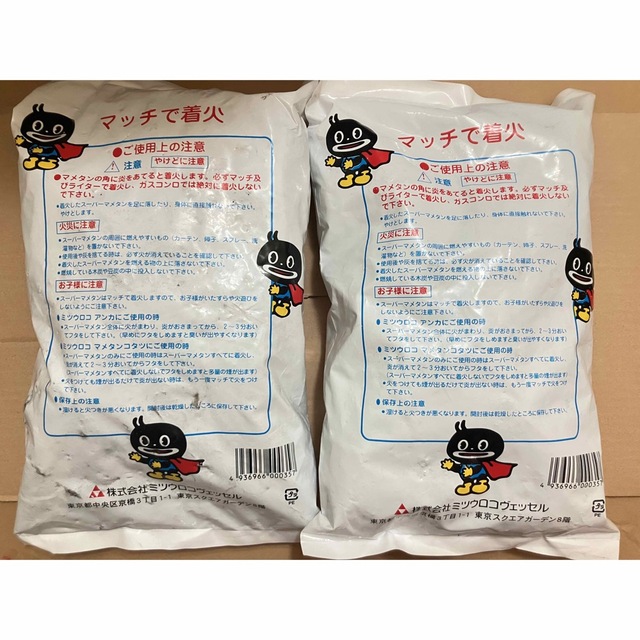 マッチで着火
●ご使用上の注意
注意 やけどに注意
●マメタンの角に炎をあてると着火します。必ずマッチ及
びライターで着火し、ガスコンロでは絶対に着火しない
で下さい。
●着火したスーパーマメタンを足に落したり、身体に直接触れないで下さい。
やけどします。
火災に注意
●スーパーマメタンの周囲に燃えやすいもの（カーテン、障子、スプレー、洗
濯物など）を置かないで下さい。
●使用後や灰を捨てる際は、必ず火が消えていることを確認して下さい。
●着火したスーパーマメタンを燃える物の上に落さないで下さい。
●燃焼している木炭や豆炭の中に投入しないで下さい。
お子様に注意
●スーパーマメタンはマッチで着火しますので、お子様がいたずらや火遊びを
しないようにご注意下さい。
●ミツウロコ アンカにご使用の時
●スーパーマメタン全体に火がまわり、炎がおさまってから、2〜3分おい
てフタをして下さい。（早めにフタをしめますと臭いが出やすくなります）
●ミツウロコ マメタンコタツにご使用の時
●スーパーマメタンのみにご使用の時はスーパーマメタンすべてに着火し、
炎が消えて2〜3分おいてからフタをして下さい。
（スーパーマメタンすべてに着火しないでフタをしめますと多量の煙が出ます）
●火をつけても煙が出るだけで炎が出ない時は、もう一度マッチで火をつけ
て下さい。
●保存上の注意
●湿けると火つきが悪くなります。開封後は乾燥したところに保存して下さい。
4 936966 000357
株式会社ミツウロコヴェッセル
東京都中央区京橋3丁目1-1 東京スクエアガーデン8階
プラ
PE
マッチで着火
●ご使用上の注意
注意 やけどに注意
●マメタンの角に炎をあてると着火します。必ずマッチ及
びライターで着火し、ガスコンロでは絶対に着火しない
で下さい。
●着火したスーパーマメタンを足に落したり、身体に直接触れないで下さい。
やけどします。
火災に注意
●スーパーマメタンの周囲に燃えやすいもの（カーテン、障子、スプレー、洗
濯物など）を置かないで下さい。
●使用後や灰を捨てる際は、必ず火が消えていることを確認して下さい。
●着火したスーパーマメタンを燃える物の上に落さないで下さい。
●燃焼している木炭や豆炭の中に投入しないで下さい。
お子様に注意
●スーパーマメタンはマッチで着火しますので、お子様がいたずらや火遊びを
しないようにご注意下さい。
●ミツウロコ アンカにご使用の時
●スーパーマメタン全体に火がまわり、炎がおさまってから、2〜3分おい
てフタをして下さい。（早めにフタをしめますと臭いが出やすくなります）
●ミツウロコ マメタンコタツにご使用の時
●スーパーマメタンのみにご使用の時はスーパーマメタンすべてに着火し、
炎が消えて2〜3分おいてからフタをして下さい。
（スーパーマメタンすべてに着火しないでフタをしめますと多量の煙が出ます）
●火をつけても煙が出るだけで炎が出ない時は、もう一度マッチで火をつけ
て下さい。
●保存上の注意
●湿けると火つきが悪くなります。開封後は乾燥したところに保存して下さい。
4 936966 000357
株式会社ミツウロコヴェッセル
東京都中央区京橋3丁目1-1 東京スクエアガーデン8階
プラ
PE